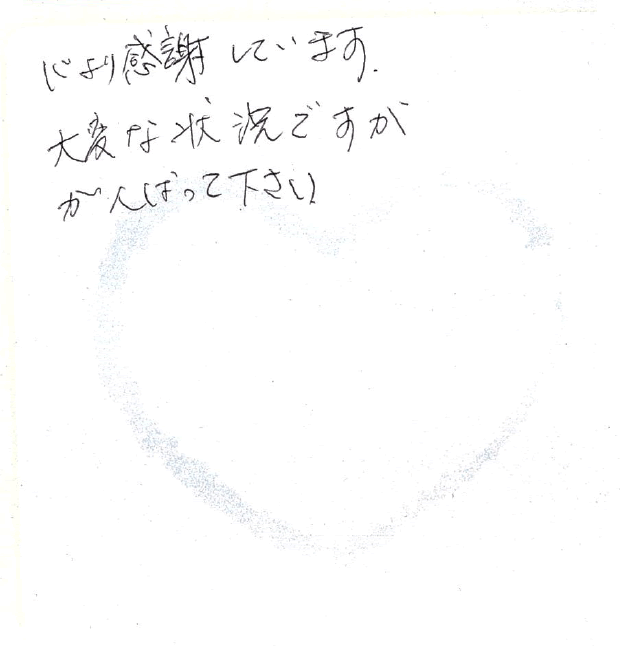 心より感謝しています.
大変な状況ですが
がんばって下さい